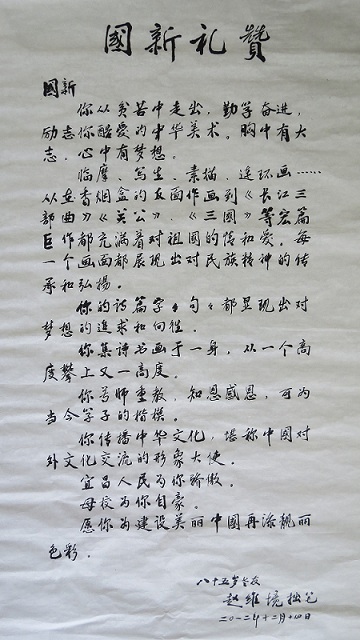 國新礼赞
國新
你从贫苦中走出，勤学奋进，
励志你酷爱的中华美术。胸中有大
志，心中有梦想。
临摩、写生、素描、连环画……
从在香烟盒的反面作画到《长江三
部曲》《关公》、《三國》等宏篇
巨作都充满着对祖國的情和爱。每
一个画面都展现出对民族精神的传
承和弘扬。
你的诗篇字字句句都显现出对
梦想的追求和向往。
你集诗书画于一身，从一个高
度攀上又一高度。
你尊师重教，知恩感恩，可为
当今学子的楷模。
你传播中华文化，堪称中國对
外文化交流的形象大使。
宜昌人民为你骄傲。
母校为你自豪。
愿你为建设美丽中國再添靓丽
色彩。
八十五岁
赵维境拙笔
二〇一二年十二月十四日